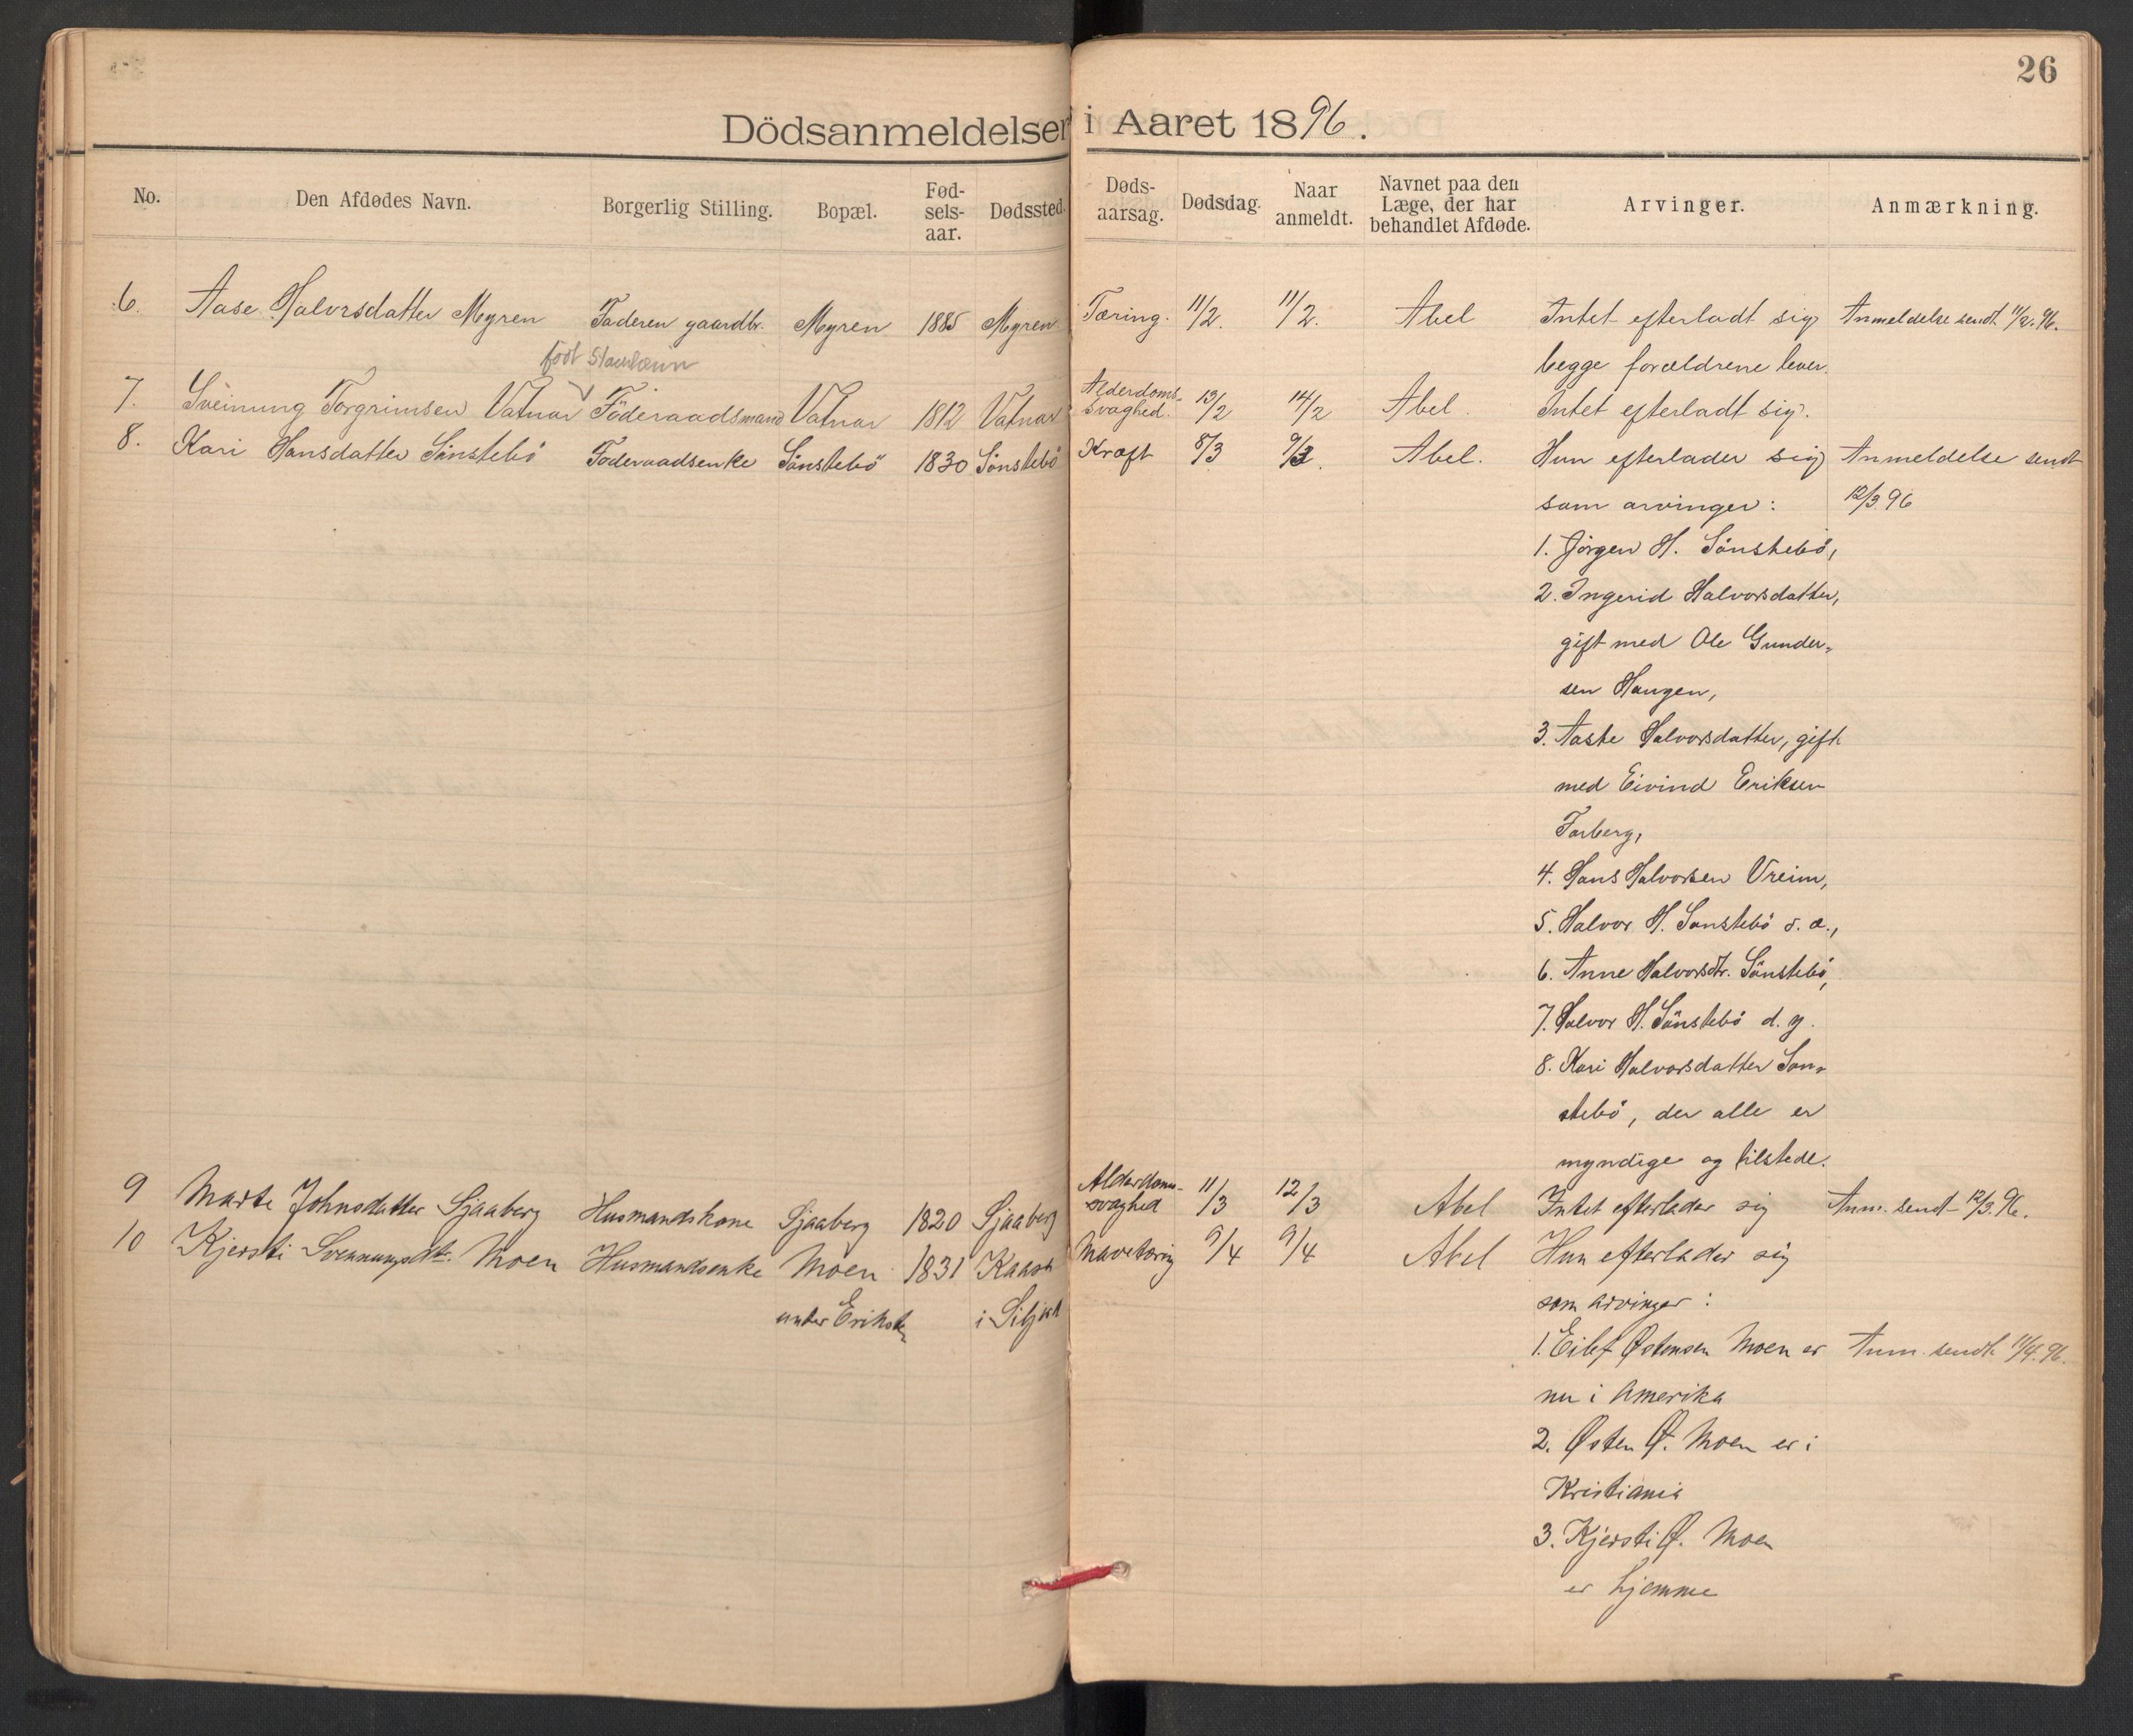 26
Dödsanmeldelser i Aaret 1896.
No. Den Afdødes Navn. Borgerlig Stilling. Bopæl. Fød-sels-aar. Dødssted. Døds-aarsag. Dødsdag. Naar anmeldt. Navnet paa den Læge, der har behandlet Afdøde. Arvinger. Anmærkning.
6. Aase Halvorsdatter Myren Faderen gaardbr. Myren 1885 Myren Tæring. 11/2. 11/2. Abel Intet efterladt sig, Anmeldelse sendt 11/2.96.
begge forældrene lever.
født
7. Sveinung Torgrimsen Vatnar Föderaadsmand Vatnar 1812 Vatnar Alderdoms-svaghed. 13/2 14/2 Abel. Intet efterladt sig.
8. Kari Hansdatter Sönstebö Foderaadsenke Sönstebö 1830 Sönstebö Kræft 8/3 9/3. Abel. Hun efterlader sig Anmeldelse sendt
som arvinger: 12/3.96
1. Jörgen H. Sönstebö,
2. Ingerid Halvorsdatter,
gift med Ole Gunder-
sen Haugen,
3. Aaste Halvorsdatter, gift
med Eivind Eriksen
Farberg,
4. Hans Halvorsen Vreim,
5. Halvor H. Sonstebö d. æ.,
6. Anne Halvorsdtr. Sönstebö,
7. Halvor H. Sönstebö d. y.
8. Kari Halvorsdatter Son-
stebö, der alle er
myndige og tilstede.
9 Marte Johnsdatter Sjaaberg Husmandskone Sjaaberg 1820 Sjaaberg Alderdoms-svaghed 11/3 12/3 Abel Intet efterlader sig Anm. sendt 12/3.96.
10 Kjersti Svennungsdtr. Moen Husmandsenke Moen 1831 Kaasa Mavetæring 9/4 9/4 Abel Hun efterlader sig
under Erikstein i Siljord som arvinger:
1. Eilef Østensen Moen er Anm. sendt 11/4.96.
nu i Amerika
2. Østen Ø. Moen er i
Kristiania
3. Kjersti Ø. Moen
er hjemme